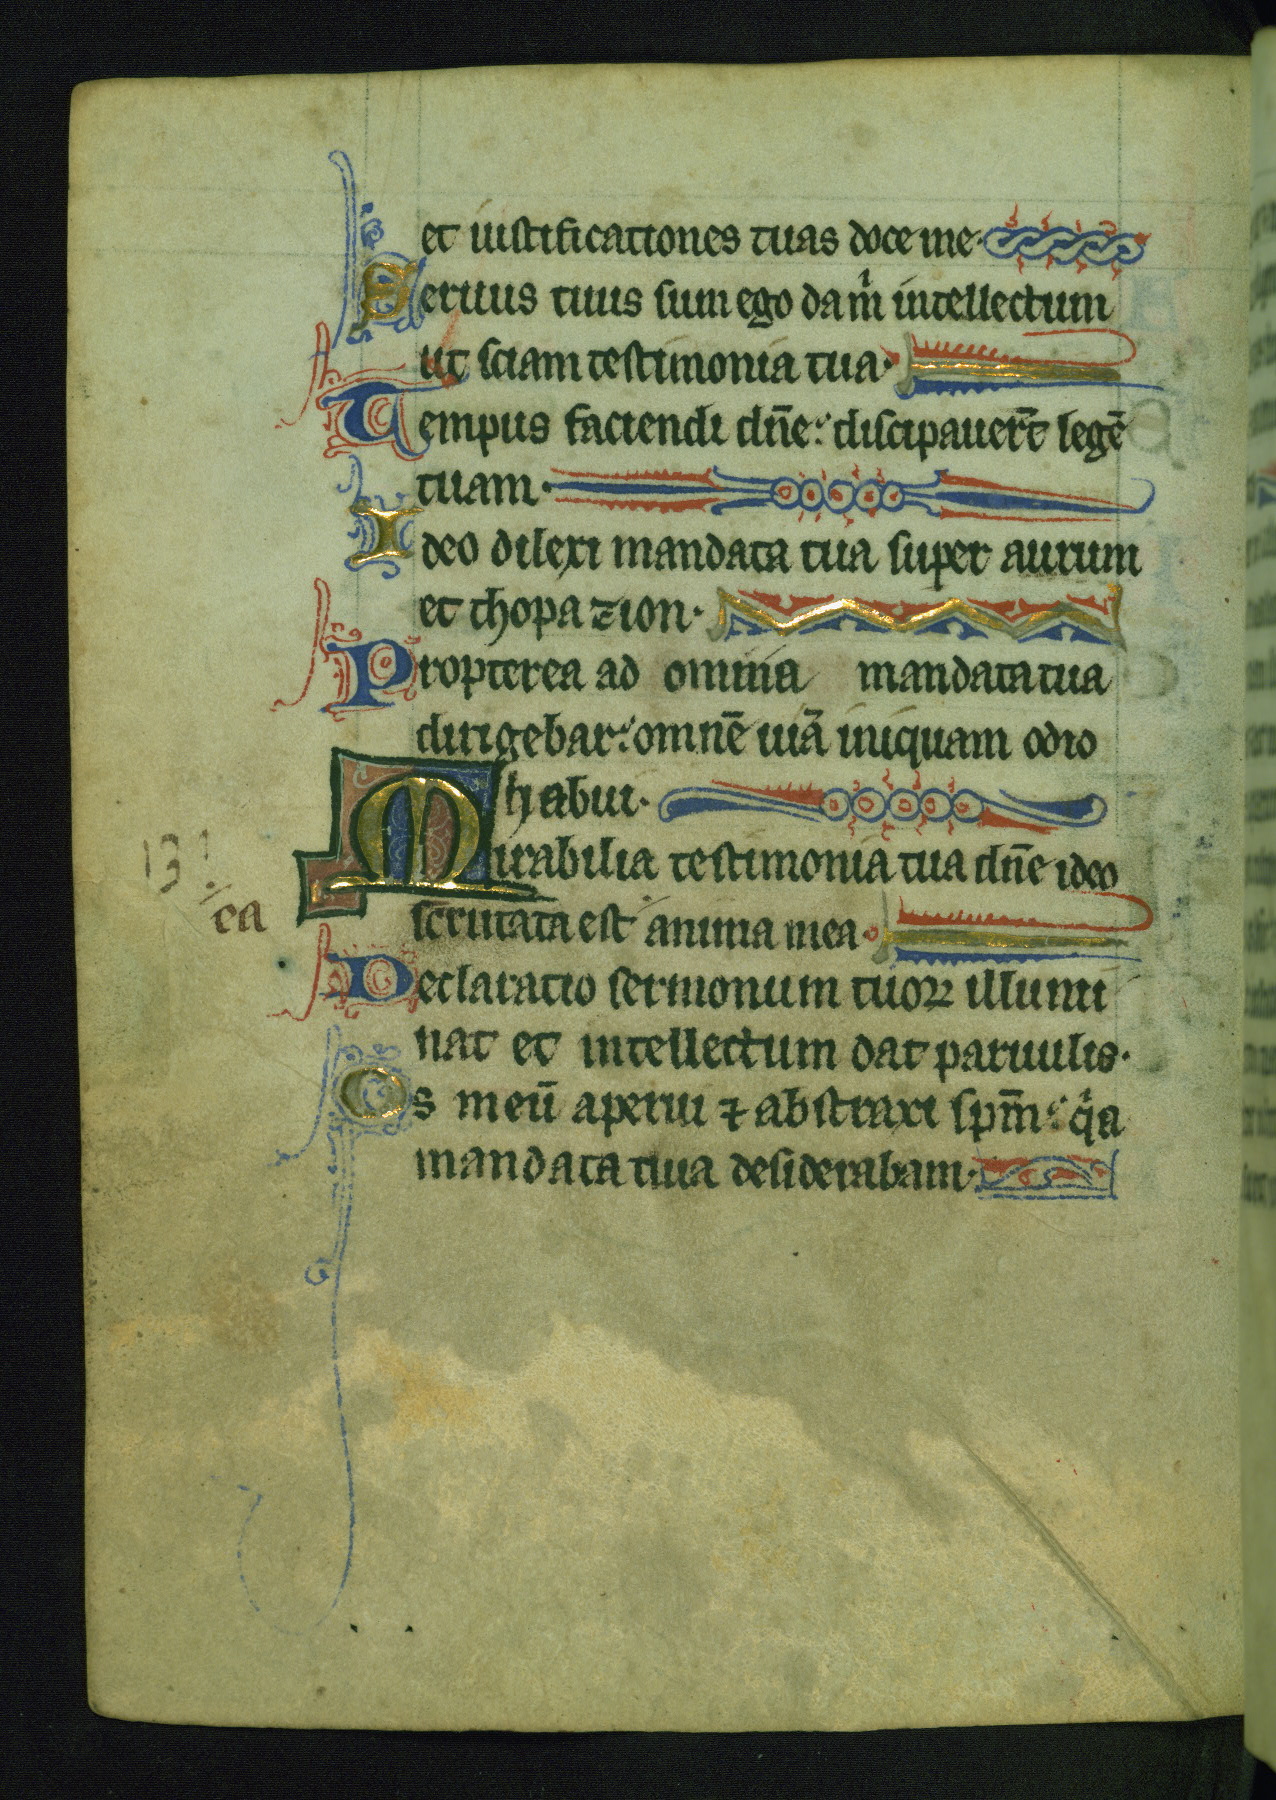 et iustificationes tuas doce me·
Seruus tuus sum ego da m̍ intellectum
ut sciam testimonia tua·
Tempus faciendi dn̄e: discipauer̄t legē
tuam·
Ideo dilexi mandata tua super aurum
et thopazion·
Propterea ad omnia mandata tua
dirigebar: omnē uiā iniquam odio
habui·
Mirabilia testimonia tua dn̄e ideo
scrutata est anima mea·
ea
Declaratio sermonum tuoꝝ illumi
nat et intellectum dat paruulis·
Os meū aperui ⁊ abstraxi sp̄m: q̍a
mandata tua desiderabam·